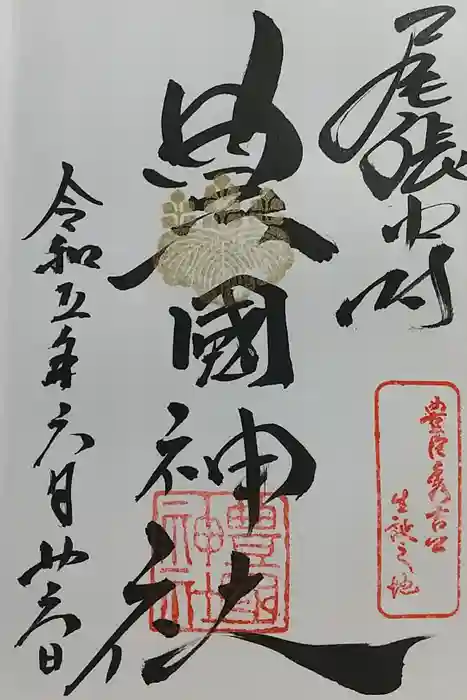 尾張中村
豊國神社
豊國神社
豊臣秀吉公
生誕之地
令和五年六月廿六日